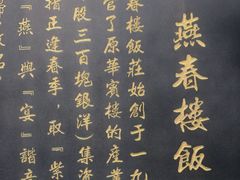 燕春樓飯
春樓飯莊始創于一九
了原華賓樓的産業
股三百塊銀洋）集資
指正逢春季，取『紫
『燕』與『宴』諧音